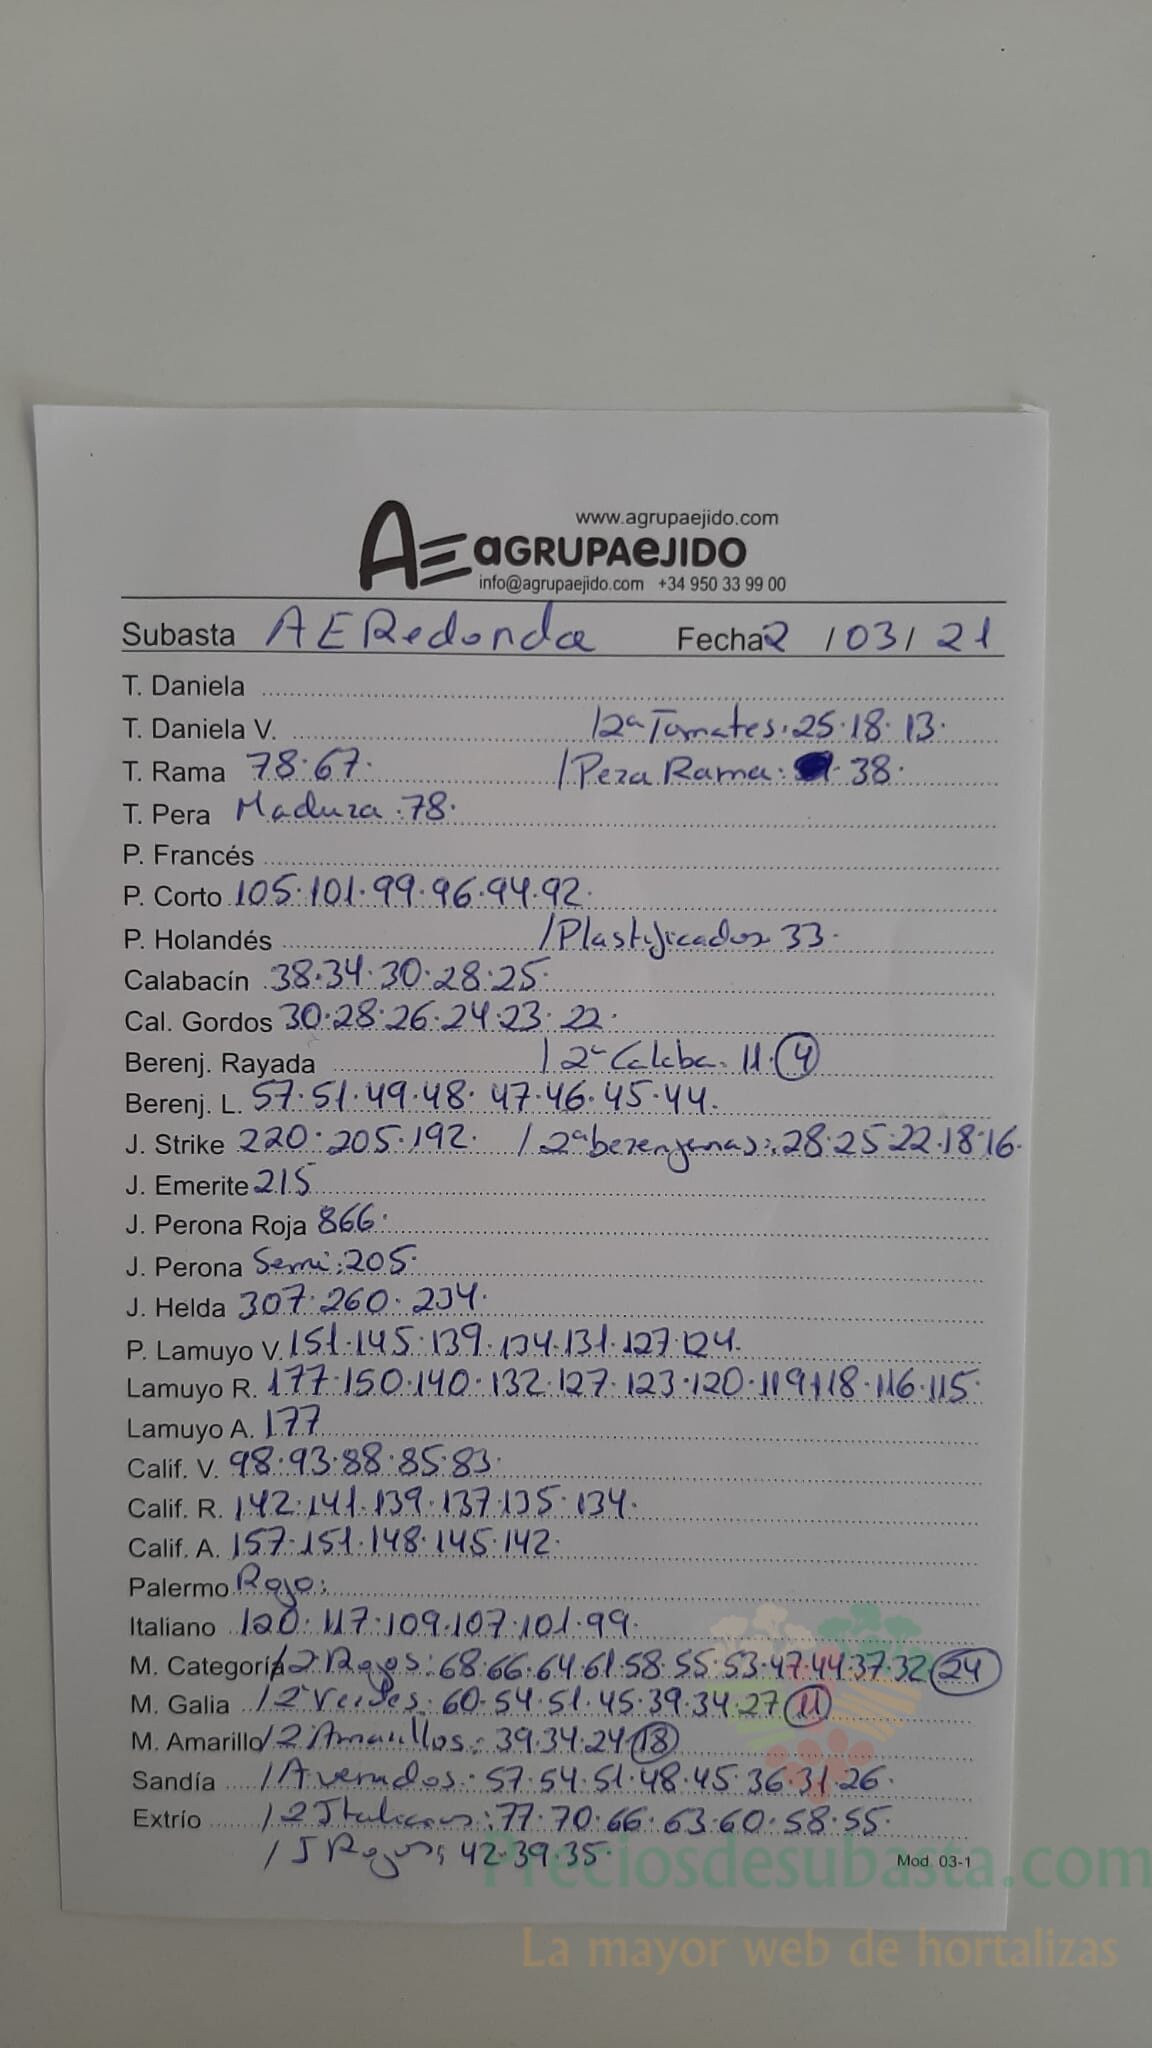 www.agrupaejido.com
AE aGRUPAeJIDO
info@agrupaejido.com +34 950 33 99 00
Subasta AERedonda Fecha 2 / 03 / 21
T. Daniela
T. Daniela V. /2ª Tomates. 25.18.13.
T. Rama 78.67. /Peza Rama: .38.
T. Pera Maduza .78.
P. Francés
P. Corto 105.101.99.96.94.92.
P. Holandés /Plastificados 33.
Calabacín 38.34.30.28.25.
Cal. Gordos 30.28.26.24.23.22.
Berenj. Rayada /2ª Calaba. 11. 4
Berenj. L. 57.51.49.48. 47.46.45.44.
J. Strike 220.205.192. /2ª bezenjenas: 28.25.22.18.16.
J. Emerite 215
J. Perona Roja 866.
J. Perona Semi: 205.
J. Helda 307.260.234.
P. Lamuyo V. 151.145.139.134.131.127.124.
Lamuyo R. 177.150.140.132.127.123.120.119.118.116.115.
Lamuyo A. 177
Calif. V. 98.93.88.85.83.
Calif. R. 142.141.139.137.135.134.
Calif. A. 157.151.148.145.142.
Palermo Rojo:
Italiano 120.117.109.107.101.99.
M. Categoría /2 Rojos: 68.66.64.61.58.55.53.47.44.37.32 24
M. Galia /2ª Verdes: 60.54.51.45.39.34.27 11
M. Amarillo /2 Amarillos: 39.34.24 18
Sandía /Averados: 57.54.51.48.45.36.31.26.
Extrío /2 Italianos: 77.70.66.63.60.58.55.
/J Rojos: 42.39.35.
Mod. 03-1
Preciosdesubasta.com
La mayor web de hortalizas